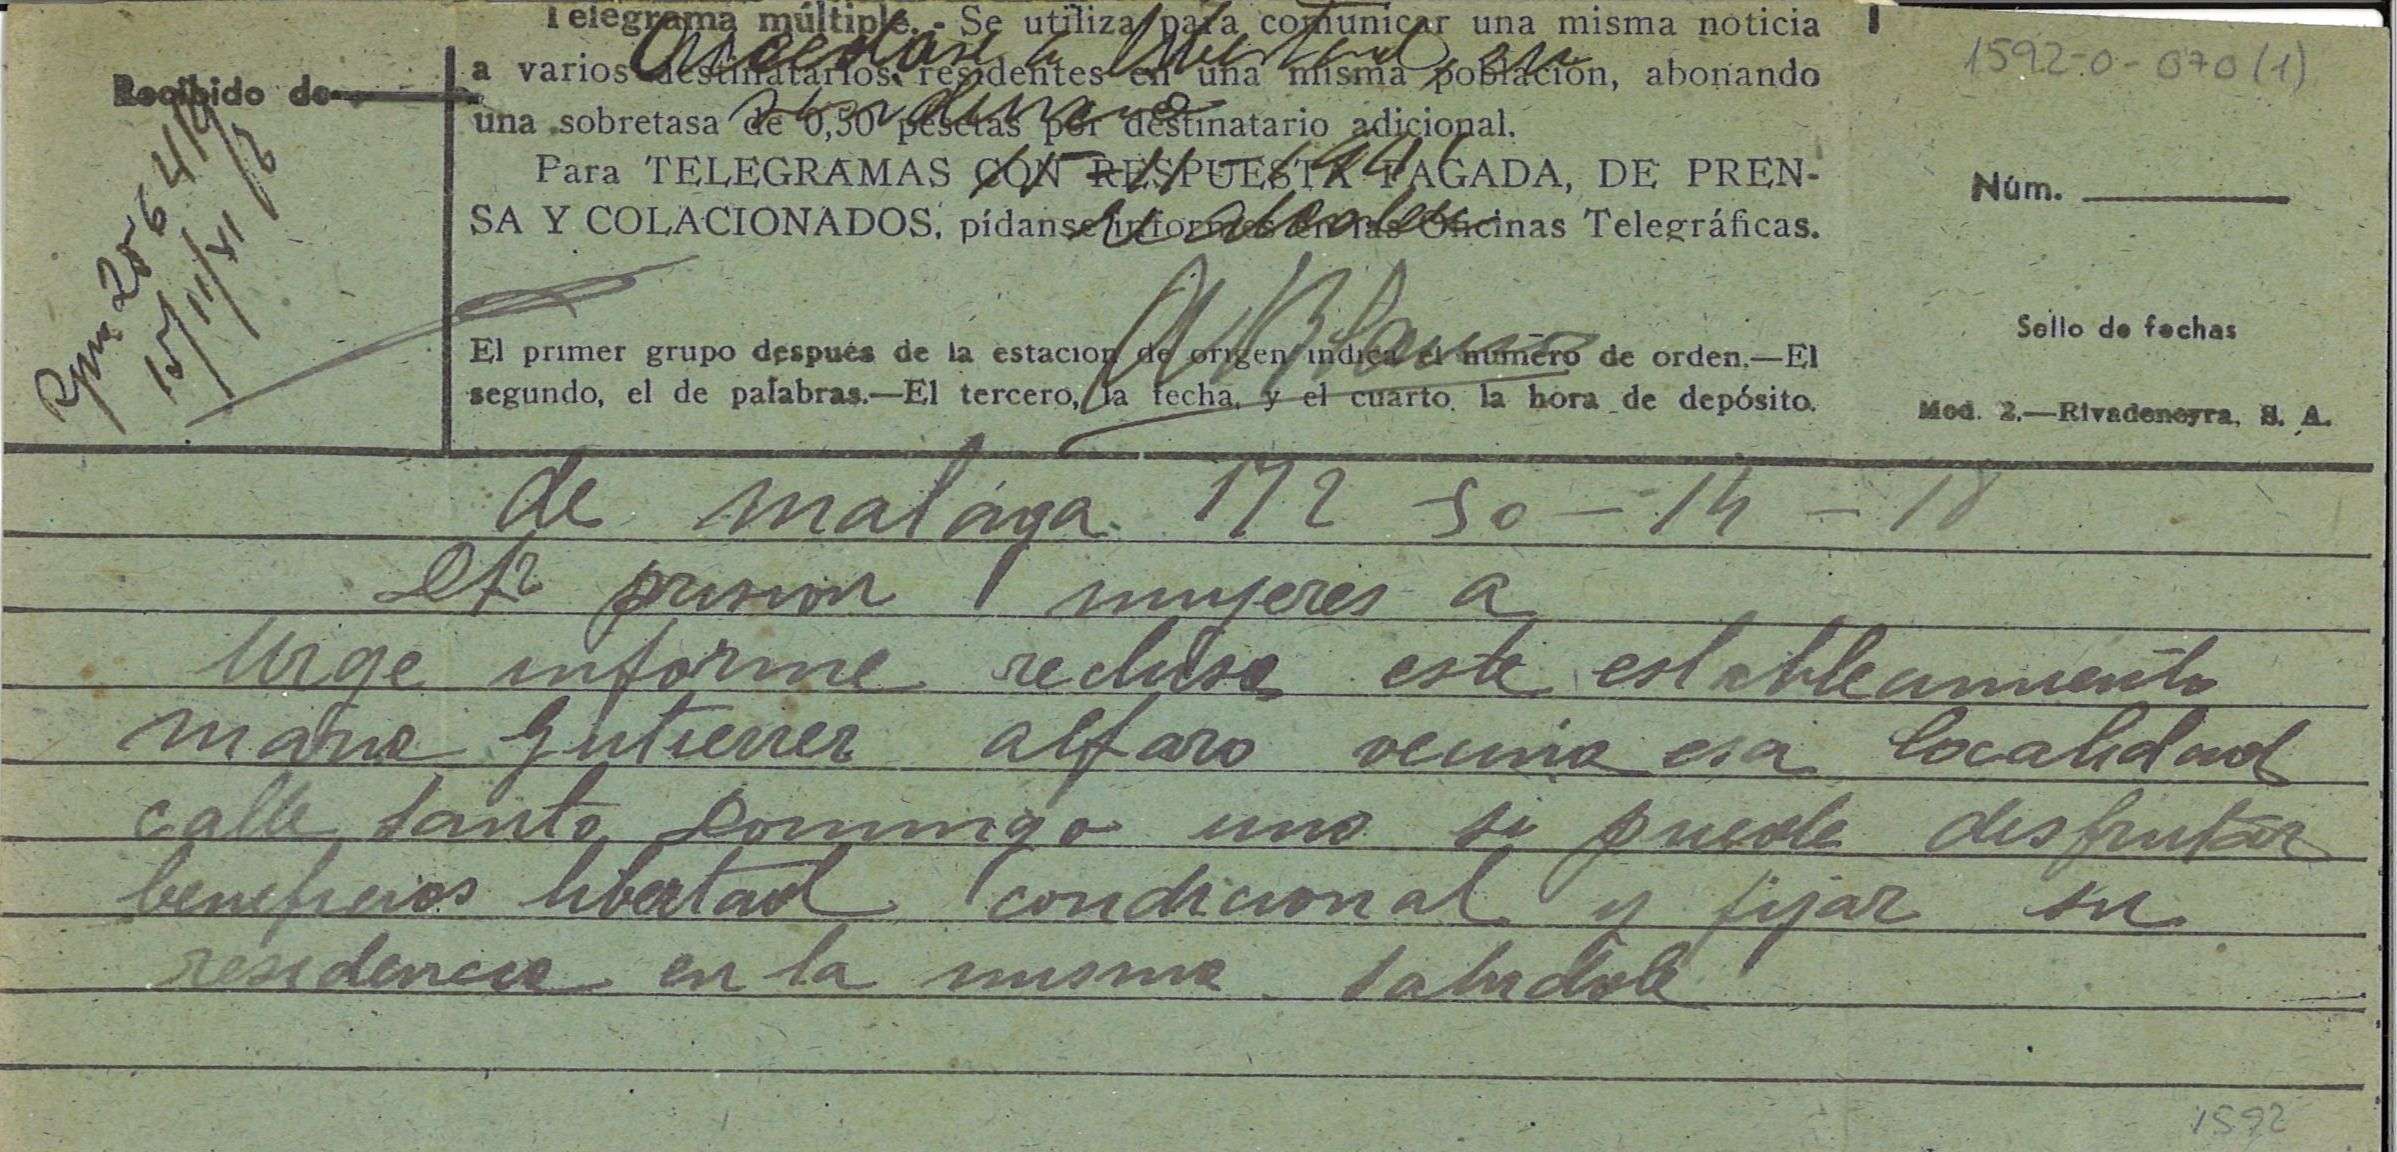 Telegrama múltiple.- Se utiliza para comunicar una misma noticia
a varios destinatarios residentes en una misma población, abonando
una sobretasa de 0,50 pesetas por destinatario adicional.
Para TELEGRAMAS CON RESPUESTA PAGADA, DE PREN-
SA Y COLACIONADOS, pídanse informes en las Oficinas Telegráficas.
El primer grupo después de la estación de origen indica el número de orden.—El
segundo, el de palabras.—El tercero, la fecha, y el cuarto, la hora de depósito.
Recibido de
15/11/41
1592-0-070(1)
Núm.
Sello de fechas
Mod. 2.—Rivadeneyra, S. A.
accedase a libertad
15-11-1941
el alcalde
de malaga 172 50-14-18
prision mujeres a
Urge informe reclusa este establecimiento
maria gutierrez alfaro vecina esa localidad
calle santo domingo uno si puede disfrutar
beneficios libertad condicional y fijar su
residencia en la misma saludole
1592